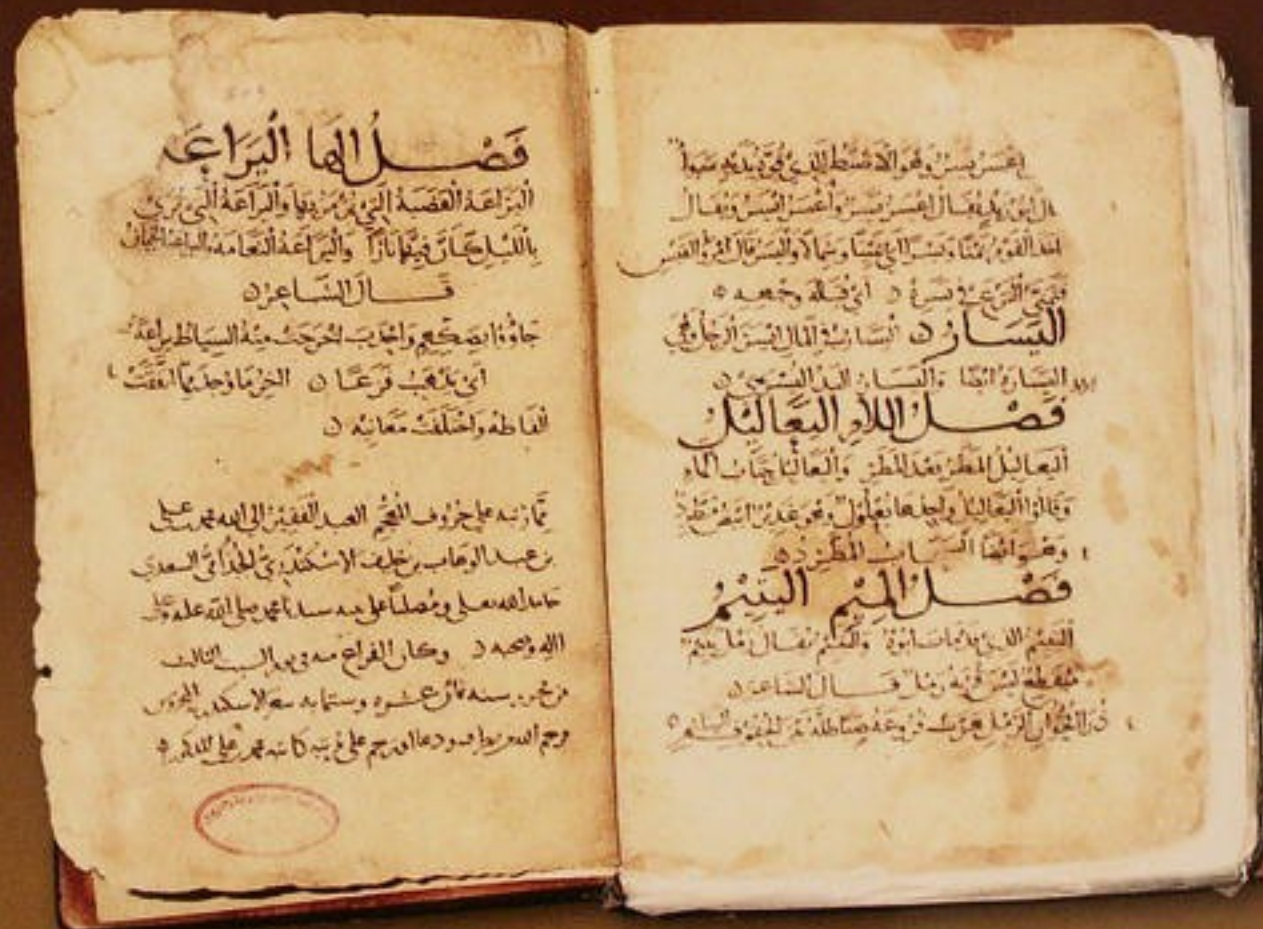 أعسر يسر وهو الأضبط الذي قوة يديه سواء
قال ابن دريد يقال أعسر يسر وأعسر أيسر ويقال
القوم يمنا ويسرا أي يمينا وشمالا واليسر قال امرؤ القيس
فتمتى النزع في يسره أي قبالة وجهه
اليسار اليسار في المال أيسر الرجل وهي
اليسارة أيضا واليسار اليد اليسرى
فصل اللام اليعاليل
اليعاليل المطر بعد المطر واليعاليل حباب الماء
وقالوا اليعاليل واحدها يعلول وهو غدير أبيض مطرد
وهو أيضا السحاب المطرد
فصل الميم اليتيم
اليتيم الذي مات أبوه واليتيم يقال رمل يتيم
منقطع ليس قربه رمل قال الشاعر
الرمل
فصل الها اليراعه
اليراعة القصبة التي يزمر بها واليراعة التي ترى
بالليل كأن فيها نارا واليراعة النعامة واليراعة الجبان
قال الشاعر
منه السياط يراعة
أي يذهب فزعا آخر ما وجد مما اتفقت
ألفاظه واختلفت معانيه
مما رتبه على حروف المعجم العبد الفقير إلى الله محمد بن علي
بن عبد الوهاب بن خليف الاسكندري الجذامي السعدي
حامدا لله تعلى ومصليا على نبيه سيدنا محمد صلى الله عليه وعلى
اله وصحبه وكان الفراغ منه في يوم السبت الثالث
من سنه ثمان عشره وستمايه بثغر الاسكندريه المحروس
ورحم الله من ودعا لمن رحم على كاتبه محمد بن علي المذكور